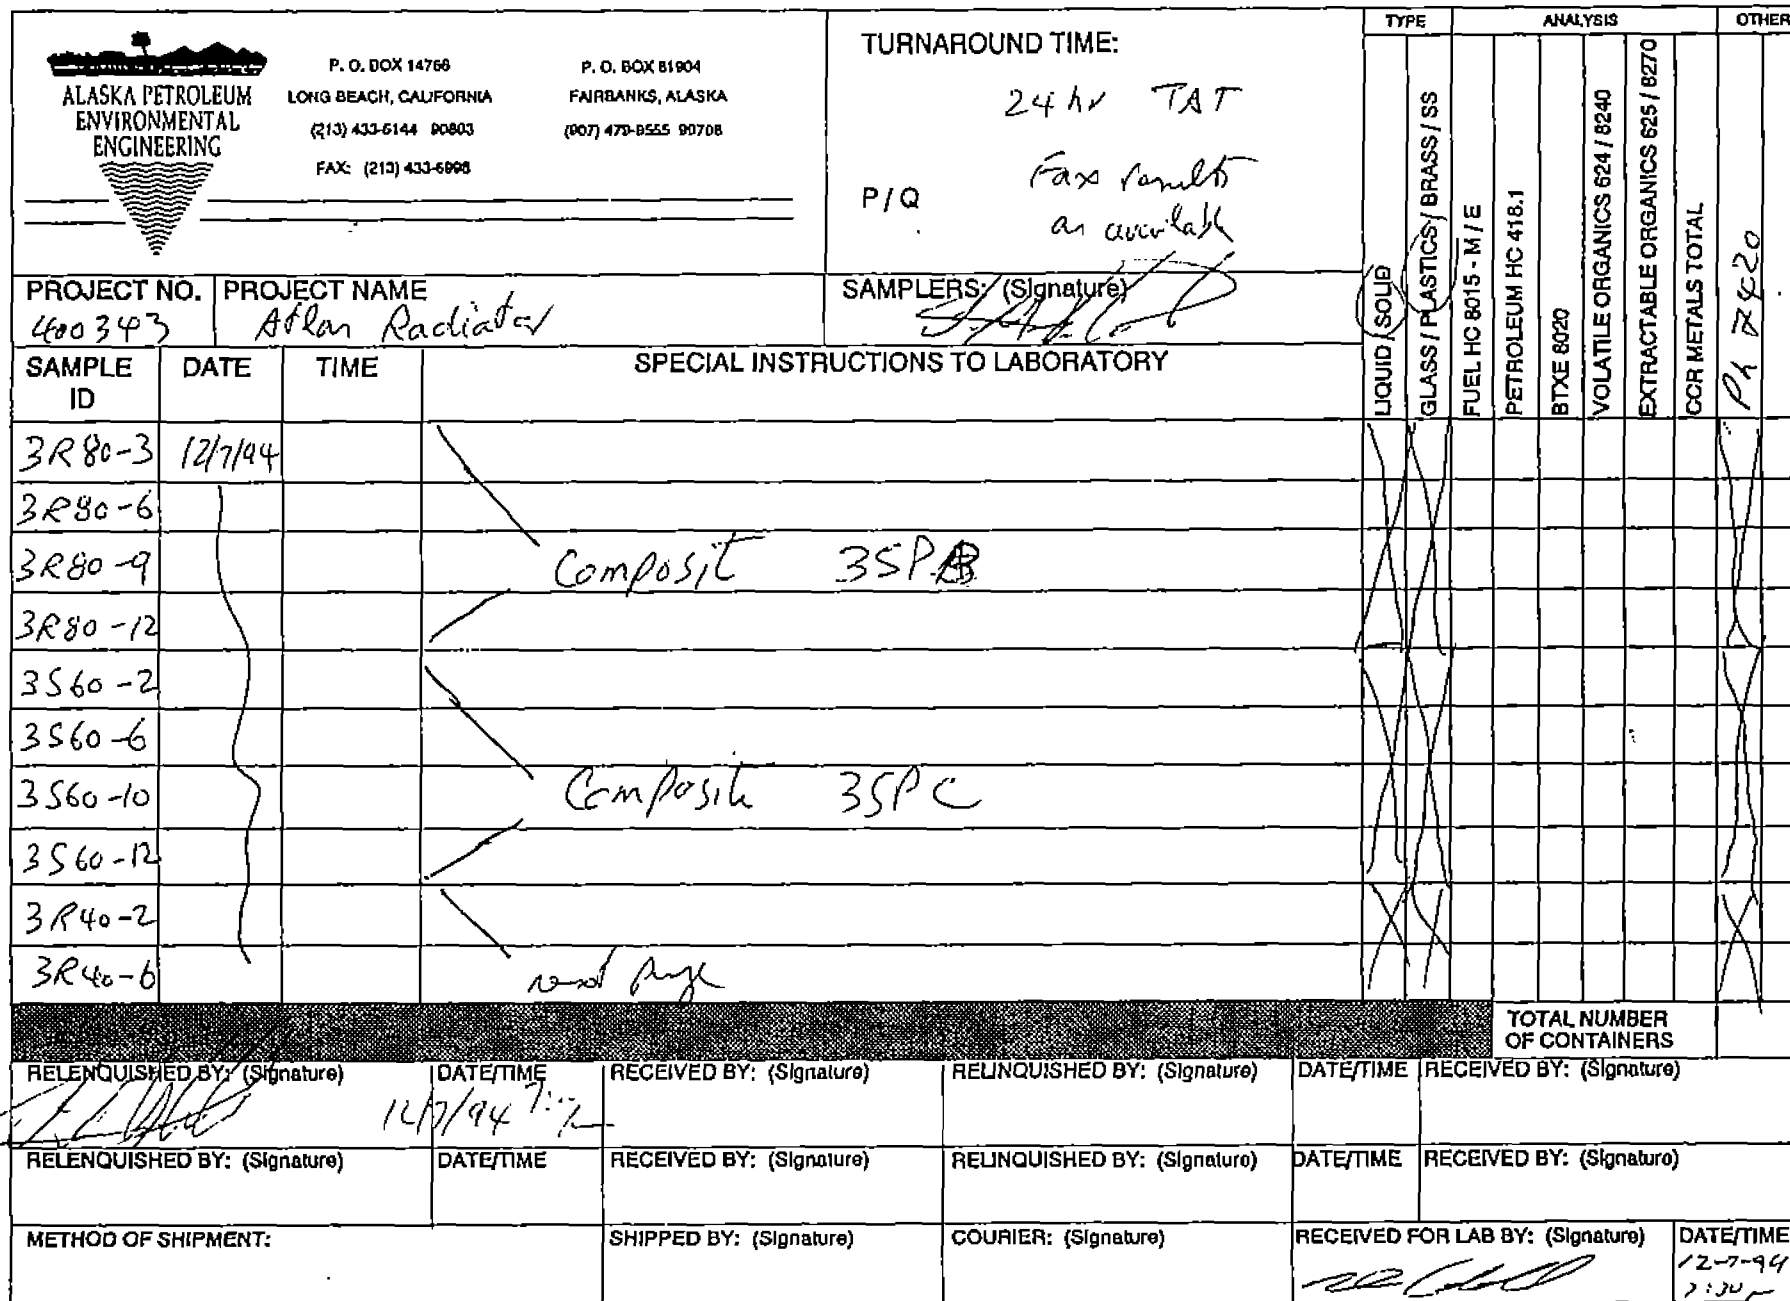 ALASKA PETROLEUM
ENVIRONMENTAL
ENGINEERING
P. O. BOX 14766
LONG BEACH, CALIFORNIA
(213) 433-5144 90803
FAX: (213) 433-6998
P. O. BOX 81904
FAIRBANKS, ALASKA
(907) 479-9555 99708
TURNAROUND TIME:
24 hr TAT
P / Q
Fax results
as available
TYPE
ANALYSIS
OTHER
LIQUID / SOLID
GLASS / PLASTICS / BRASS / SS
FUEL HC 8015 - M / E
PETROLEUM HC 418.1
BTXE 8020
VOLATILE ORGANICS 624 / 8240
EXTRACTABLE ORGANICS 625 / 8270
CCR METALS TOTAL
Pb 7420
PROJECT NO.
400343
PROJECT NAME
Atlas Radiator
SAMPLERS: (Signature)
SAMPLE ID
DATE
TIME
SPECIAL INSTRUCTIONS TO LABORATORY
3R80-3 12/7/94
3R80-6
3R80-9 Composit 3SPB
3R80-12
3S60-2
3S60-6
3S60-10 Composite 3SPC
3S60-12
3R40-2
3R40-6 next page
TOTAL NUMBER
OF CONTAINERS
RELENQUISHED BY: (Signature) DATE/TIME RECEIVED BY: (Signature) RELINQUISHED BY: (Signature) DATE/TIME RECEIVED BY: (Signature)
12/7/94
RELENQUISHED BY: (Signature) DATE/TIME RECEIVED BY: (Signature) RELINQUISHED BY: (Signature) DATE/TIME RECEIVED BY: (Signature)
METHOD OF SHIPMENT: SHIPPED BY: (Signature) COURIER: (Signature) RECEIVED FOR LAB BY: (Signature) DATE/TIME
12-7-94
7:30